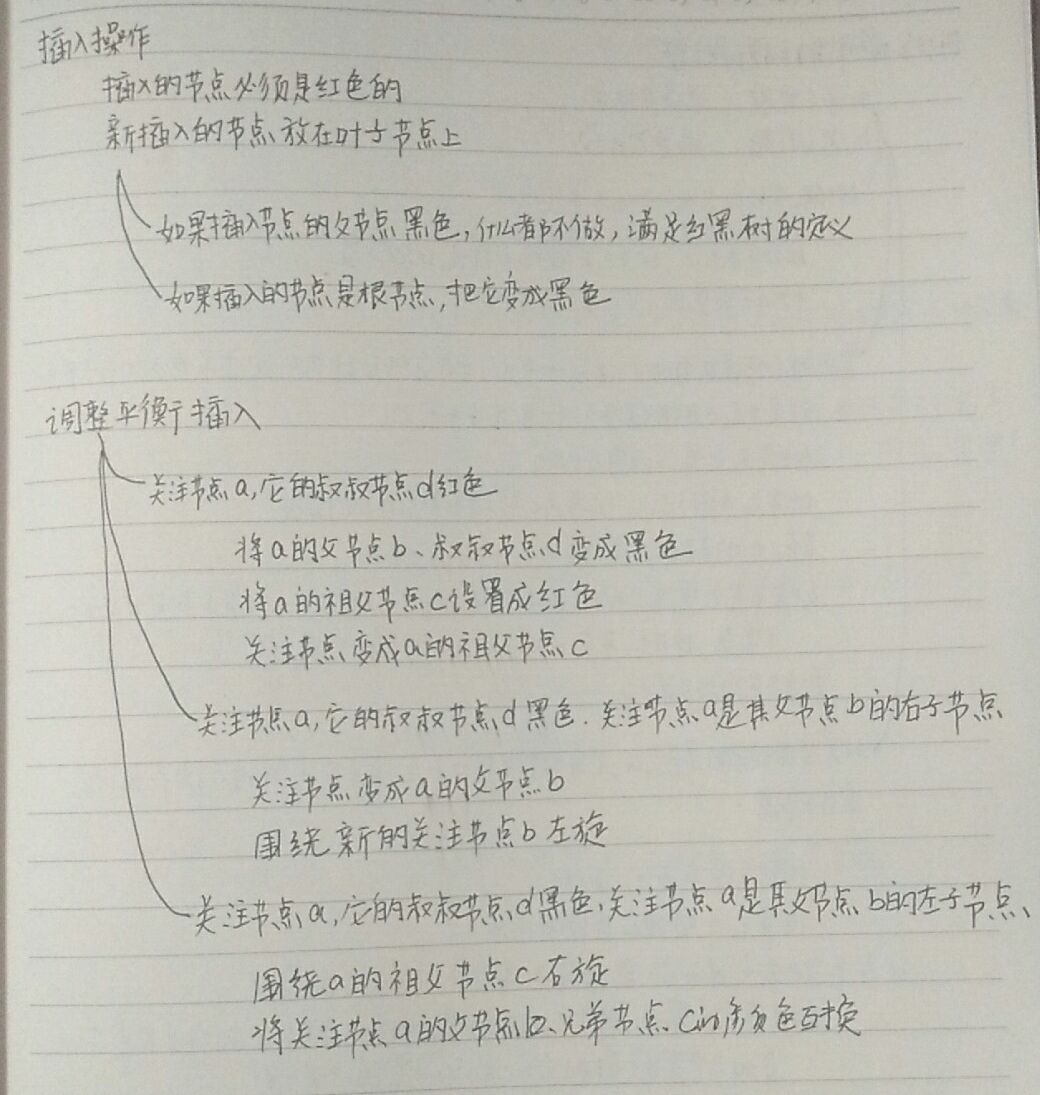 插入操作
插入的节点必须是红色的
新插入的节点放在叶子节点上
如果插入节点的父节点黑色,什么都不做,满足红黑树的定义
如果插入的节点是根节点,把它变成黑色
调整平衡插入
关注节点a,它的叔叔节点d红色
将a的父节点b、叔叔节点d变成黑色
将a的祖父节点c设置成红色
关注节点变成a的祖父节点c
关注节点a,它的叔叔节点d黑色.关注节点a是其父节点b的右子节点
关注节点变成a的父节点b
围绕新的关注节点b左旋
关注节点a,它的叔叔节点d黑色.关注节点a是其父节点b的左子节点、
围绕a的祖父节点c右旋
将关注节点a的父节点b、兄弟节点c的颜色互换